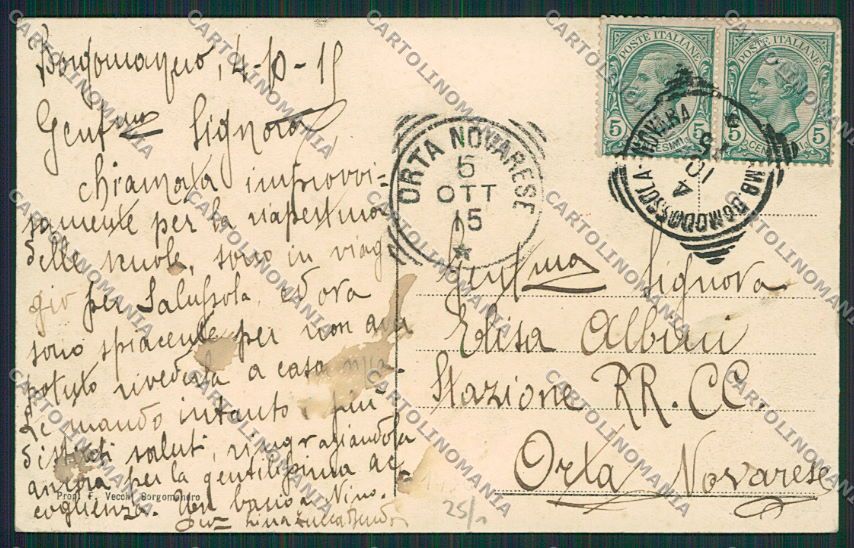 Borgomanero, 4-10-15
Gentma Signora,
Chiamata improvvi-
samente per la riapertura
delle scuole, sono in viag-
gio per Salussola, ed ora
sono spiacente per non aver
potuto rivederla a casa mia.
Le mando intanto i più
distinti saluti, ringraziandola
ancora per la gentilissima ac-
coglienza. Un bacio a Nino.
Lina
Prop. F. Vecchi Borgomanero
POSTE ITALIANE
5 CENTESIMI 5
POSTE ITALIANE
5 CENTESIMI 5
ORTA NOVARESE
5
OTT
15
AMB DOMODOSSOLA-NOVARA
4
10
15
Gentma Signora
Elisa Albini
Stazione RR. CC.
Orta Novarese
25/1
CARTOLINOMANIA